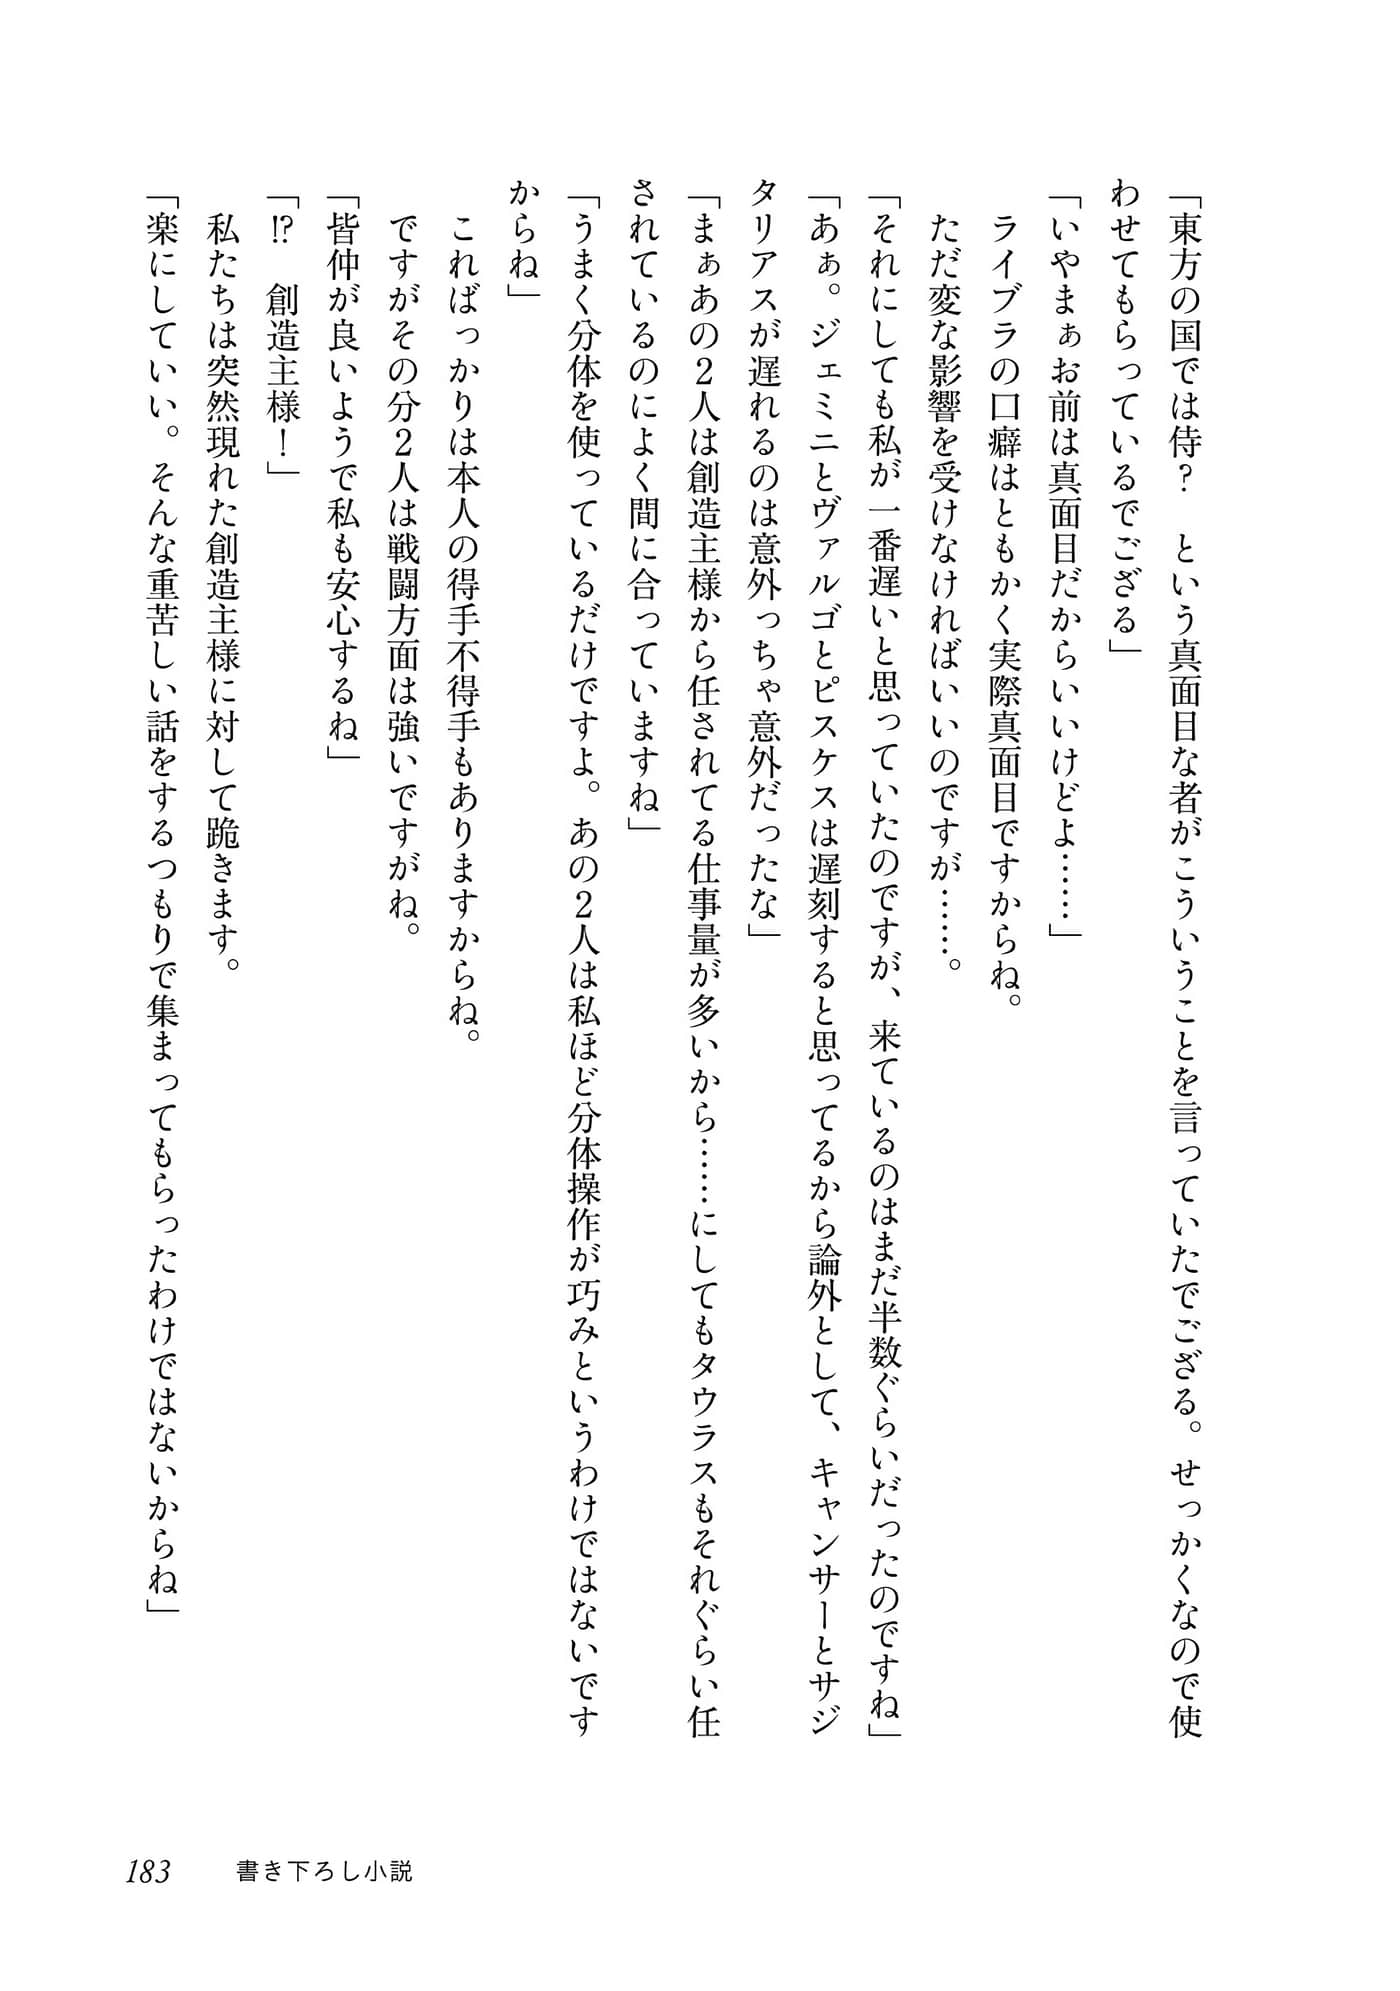 「東方の国では侍？　という真面目な者がこういうことを言っていたでござる。せっかくなので使
わせてもらっているでござる」
「いやまぁお前は真面目だからいいけどよ……」
　ライブラの口癖はともかく実際真面目ですからね。
　ただ変な影響を受けなければいいのですが……。
「それにしても私が一番遅いと思っていたのですが、来ているのはまだ半数ぐらいだったのですね」
「あぁ。ジェミニとヴァルゴとピスケスは遅刻すると思ってるから論外として、キャンサーとサジ
タリアスが遅れるのは意外っちゃ意外だったな」
「まぁあの２人は創造主様から任されてる仕事量が多いから……にしてもタウラスもそれぐらい任
されているのによく間に合っていますね」
「うまく分体を使っているだけですよ。あの２人は私ほど分体操作が巧みというわけではないです
からね」
　こればっかりは本人の得手不得手もありますからね。
　ですがその分２人は戦闘方面は強いですがね。
「皆仲が良いようで私も安心するね」
「⁉　創造主様！」
　私たちは突然現れた創造主様に対して跪きます。
「楽にしていい。そんな重苦しい話をするつもりで集まってもらったわけではないからね」
183　書き下ろし小説